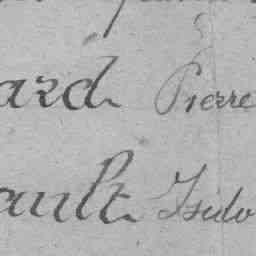 ard Pierre
ault Isido